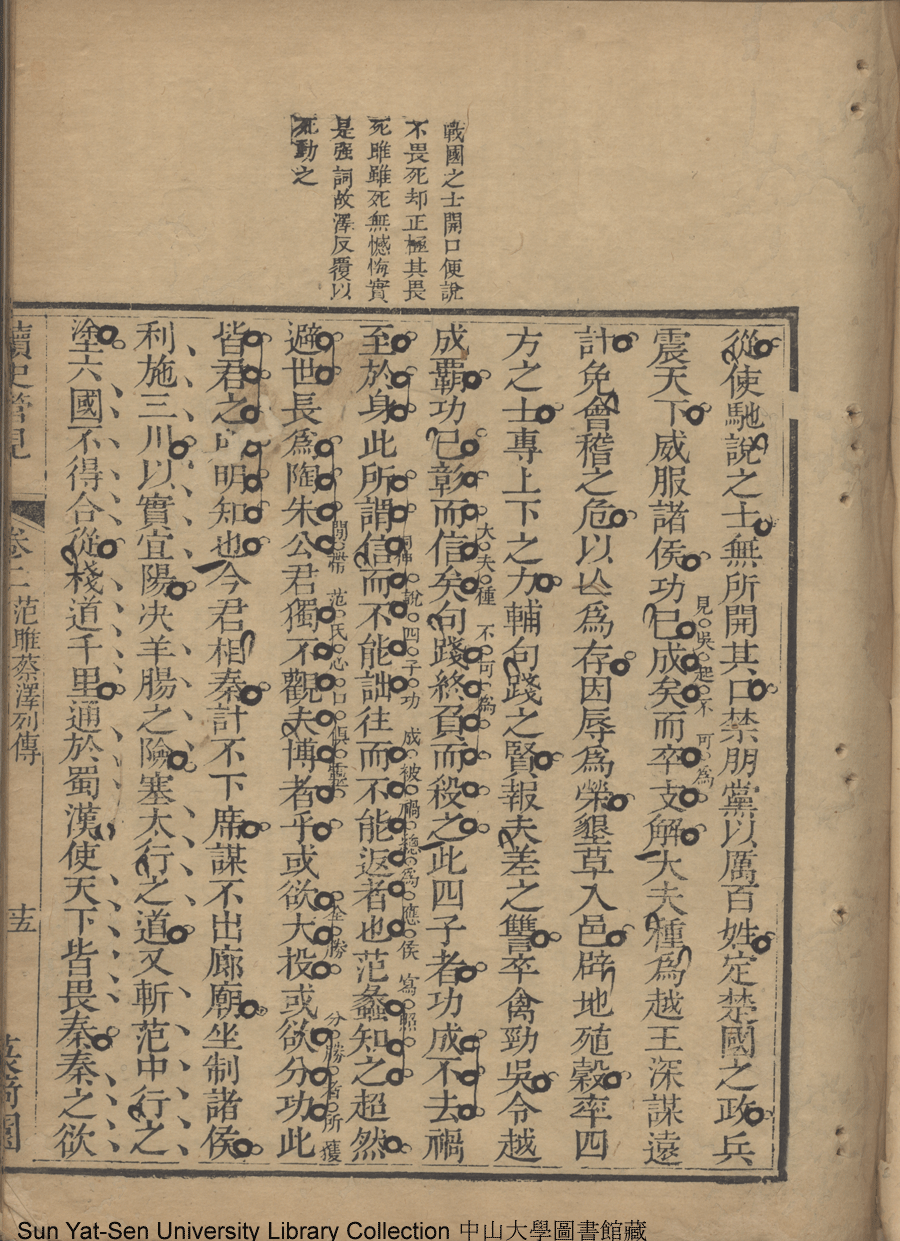 戰國之士開口便說
不畏死却正極其畏
死雎雖死無憾悔實
是强詞故澤反覆以
死動之
從使馳說之士無所開其口禁朋黨以厲百姓定楚國之政兵
震天下威服諸侯功已成矣而卒支解大夫種爲越王深謀遠
見吳起不可爲
計免會稽之危以亾爲存因辱爲榮墾草入邑辟地殖穀率四
方之士專上下之力輔句踐之賢報夫差之讐卒禽勁吳令越
成霸功已彰而信矣句踐終負而殺之此四子者功成不去禍
大夫種不可爲
至於身此所謂信而不能詘往而不能返者也范蠡知之超然
伸說四子功成被禍爲應侯寫照
避世長爲陶朱公君獨不觀夫博者乎或欲大投或欲分功此
范氏心口俱
全勝
分勝者所獲
皆君之所明知也今君相秦計不下席謀不出廊廟坐制諸侯
利施三川以實宜陽决羊腸之險塞太行之道又斬范中行之
塗六國不得合從棧道千里通於蜀漢使天下皆畏秦秦之欲
讀史管見
卷二
范雎蔡澤列傳
Sun Yat-Sen University Library Collection 中山大學圖書館藏